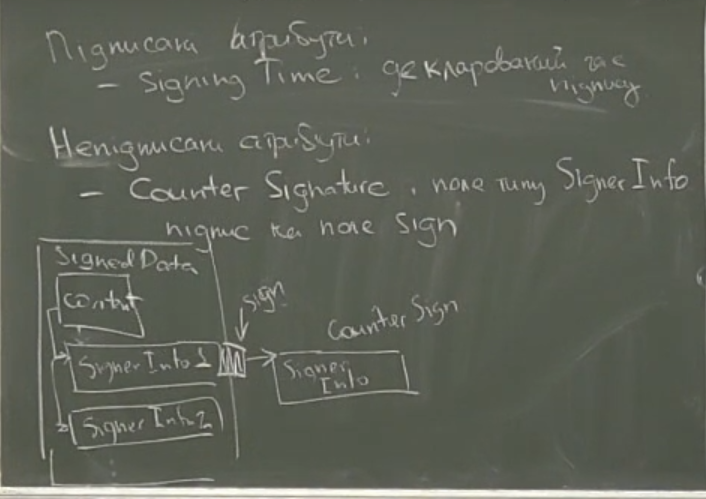 Підписані атрибути:
- Signing Time: декларований час
підпису
Непідписані атрибути:
- Counter Signature, поле типу Signer Info
підпис на поле Sign
Signed Data
Content
Sign
Counter Sign
Signer Info 1
Signer
Info
Signer Info 2